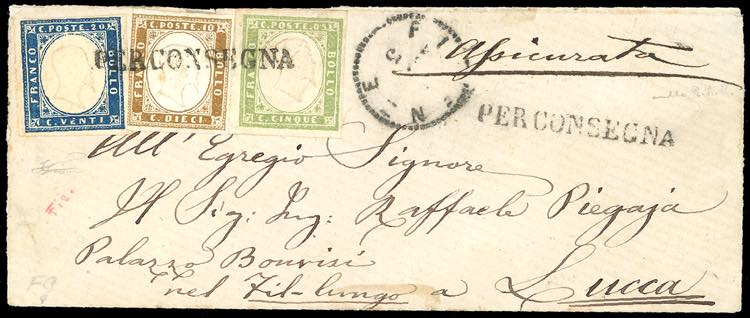 C. POSTE. 20.
FRANCO
BOLLO
C. VENTI
C. POSTE. 10
FRANCO
BOLLO
C. DIECI
C. POSTE. 05
FRANCO
BOLLO
C. CINQUE
PER CONSEGNA
Assicurata
PER CONSEGNA
All' Egregio Signore
Il Sig: Ing: Raffaele Piegaja
Palazzo Bonvisi
nel Fil-lungo a Lucca